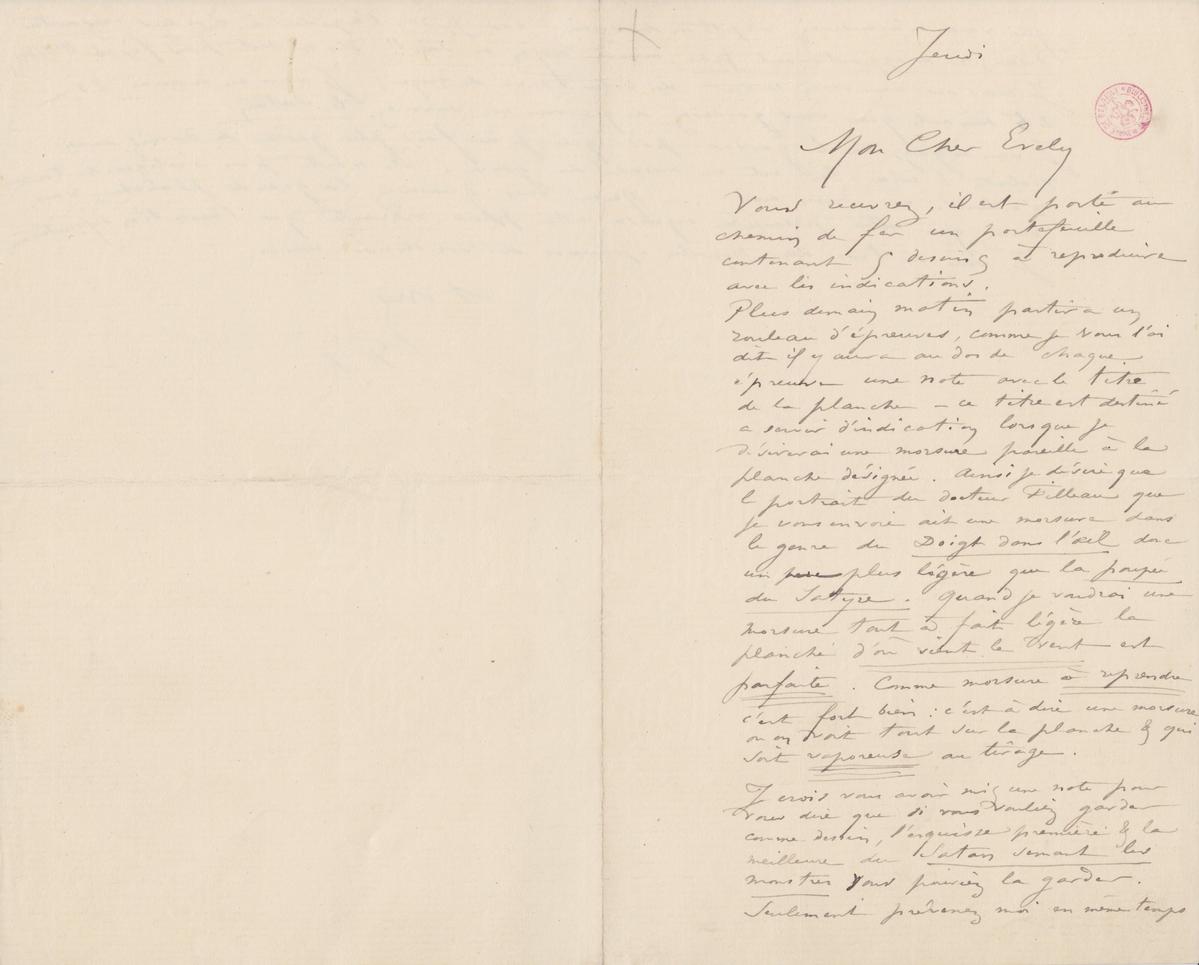 Jeudi
Mon Cher Evely
Vous recevrez, il est porté au
chemin de fer un portefeuille
contenant 5 dessins à reproduire
avec les indications.
Plus demain matin partira un
rouleau d'épreuves, comme je vous l'ai
dit il y aura au dos de chaque
épreuve une note avec le titre
de la planche – ce titre est destiné
a servir d'indication lorsque je
désirerai une morsure pareille à la
planche désignée. Ainsi je désire que
l portrait du docteur Filleau que
je vous envoie ait une morsure dans
le genre du Doigt dans l'œil donc
un peu plus légère que la poupée
du Satyre. Quand je voudrai une
morsure tout à fait légère la
planche d'où vient le Vent est
parfaite. Comme morsure à reprendre
c'est fort bien : c'est à dire une morsure
ou on voit tout sur la planche & qui
soit vaporeuse au tirage.
Je crois vous avoir mis une note pour
vous dire que si vous vouliez garder
comme dessin, l'esquisse première & la
meilleure du Satan semant les
monstres vous pouviez la garder.
Seulement prévenez moi en même temps